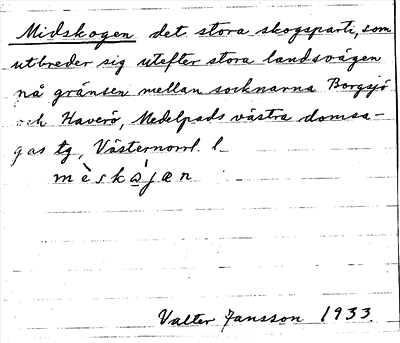 Midskogen det stora skogsparti, som
utbreder sig utefter stora landsvägen
på gränsen mellan socknarna Borgsjö
och Haverö, Medelpads västra domsa-
gas tg, Västernorrl. l
mèskájæn
Valter Jansson 1933.